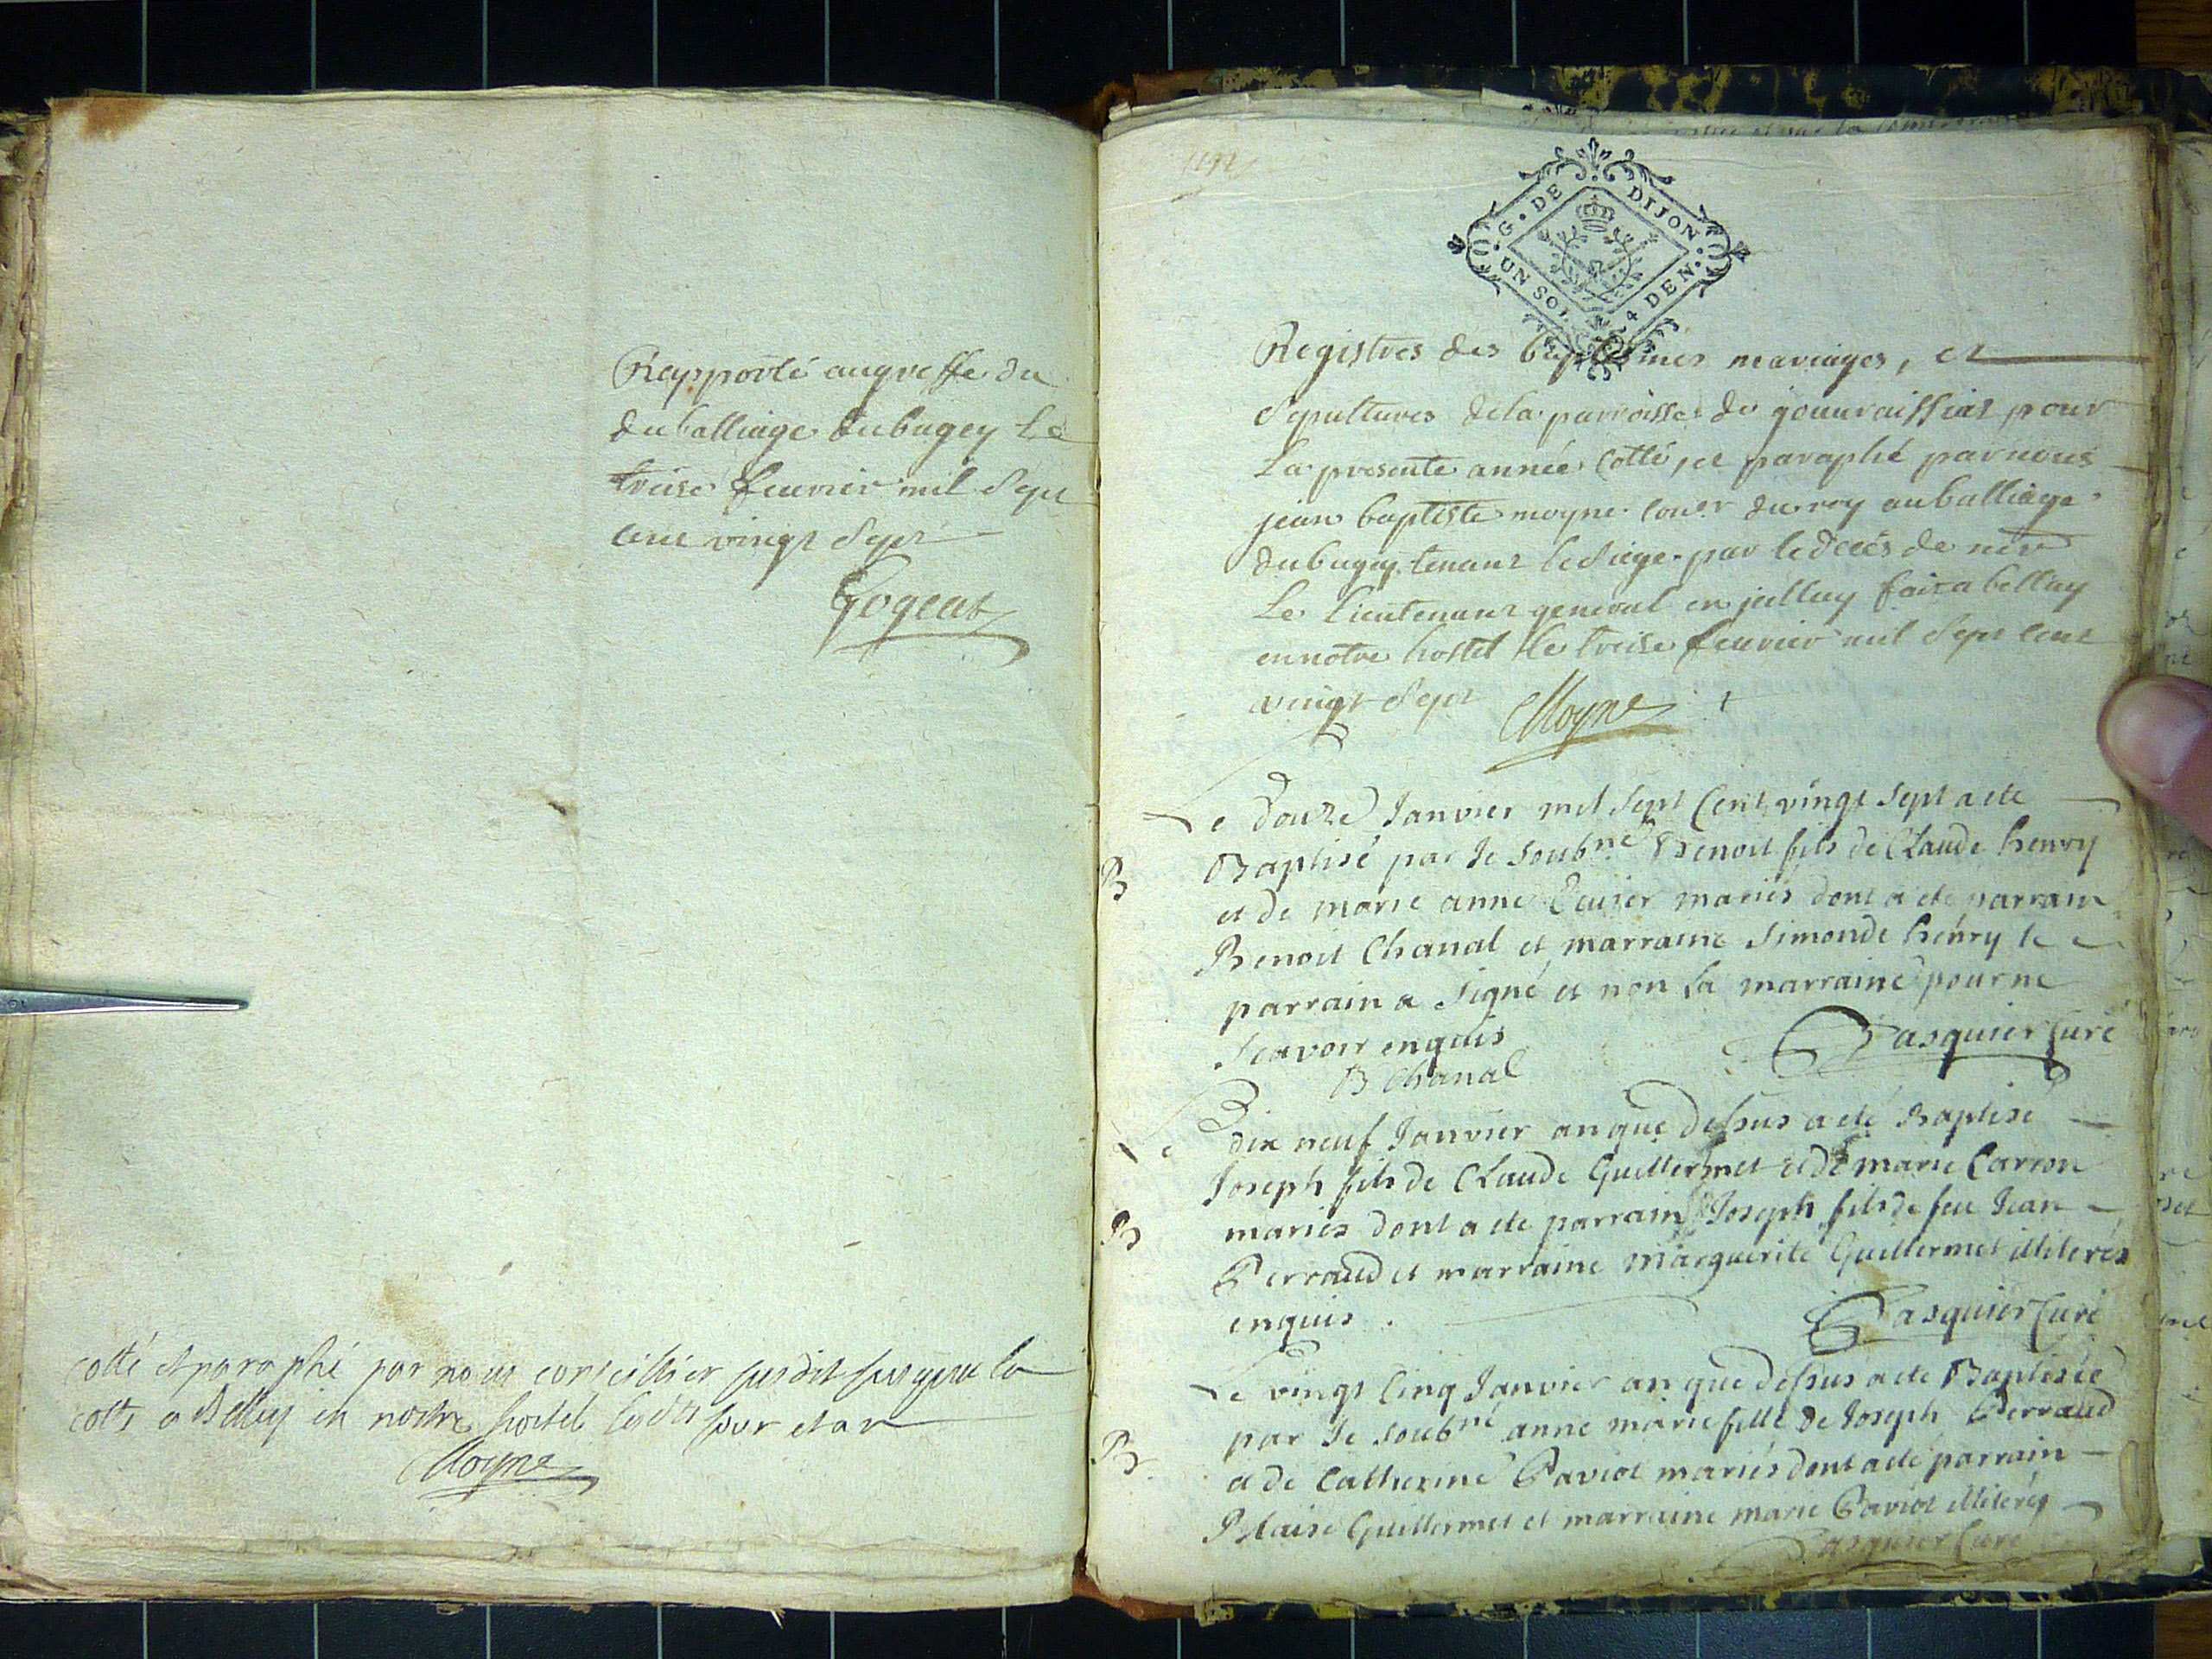 Rapporté au greffe du
du balliage du bugey le
treise feuvrier mil sept
cent vingt sept
Gogeat
cotté et paraphé par nous conseillier susdit
cotte a Belley en nostre hostel lesdits jour et an
Moyne
G. DE DIJON
UN SOL 4 DEN.
Registres des baptesmes mariages, et
sepultures de la parroisse de gouvraissiat pour
La presente année Cotté, et paraphé par nous
jean baptiste moyne Coner du roy au balliage
du bugey tenant le siege par le deces de
Le lieutenant general en fait a belley
en notre hostel le treise feuvrier mil sept cent
vingt sept Moyne
Le douze Janvier mil sept Cent vingt sept a ete
B
Baptisé par Je soubné Benoit fils de Claude henry
et de marie anne mariés dont a ete parrain
Benoit Chanal et marraine Simonde henry le
parrain a signé et non la marraine pour ne
scavoir enquis
Pasquier Curé
B Chanal
Le dix neuf Janvier an que dessus a eté Baptisé
Joseph fils de Claude Guillermet et de marie Carron
B
mariés dont a ete parrain Joseph fils de feu Jean
Perraud et marraine marguerite Guillermet illiterés
enquis.
Pasquier Curé
Le vingt Cinq Janvier an que dessus a ete Baptisée
par Je soubné anne marie fille de Joseph Perraud
B
et de Catherine Paviot mariés dont a eté parrain
Blaise Guillermet et marraine marie Paviot illiterés
Pasquier Curé